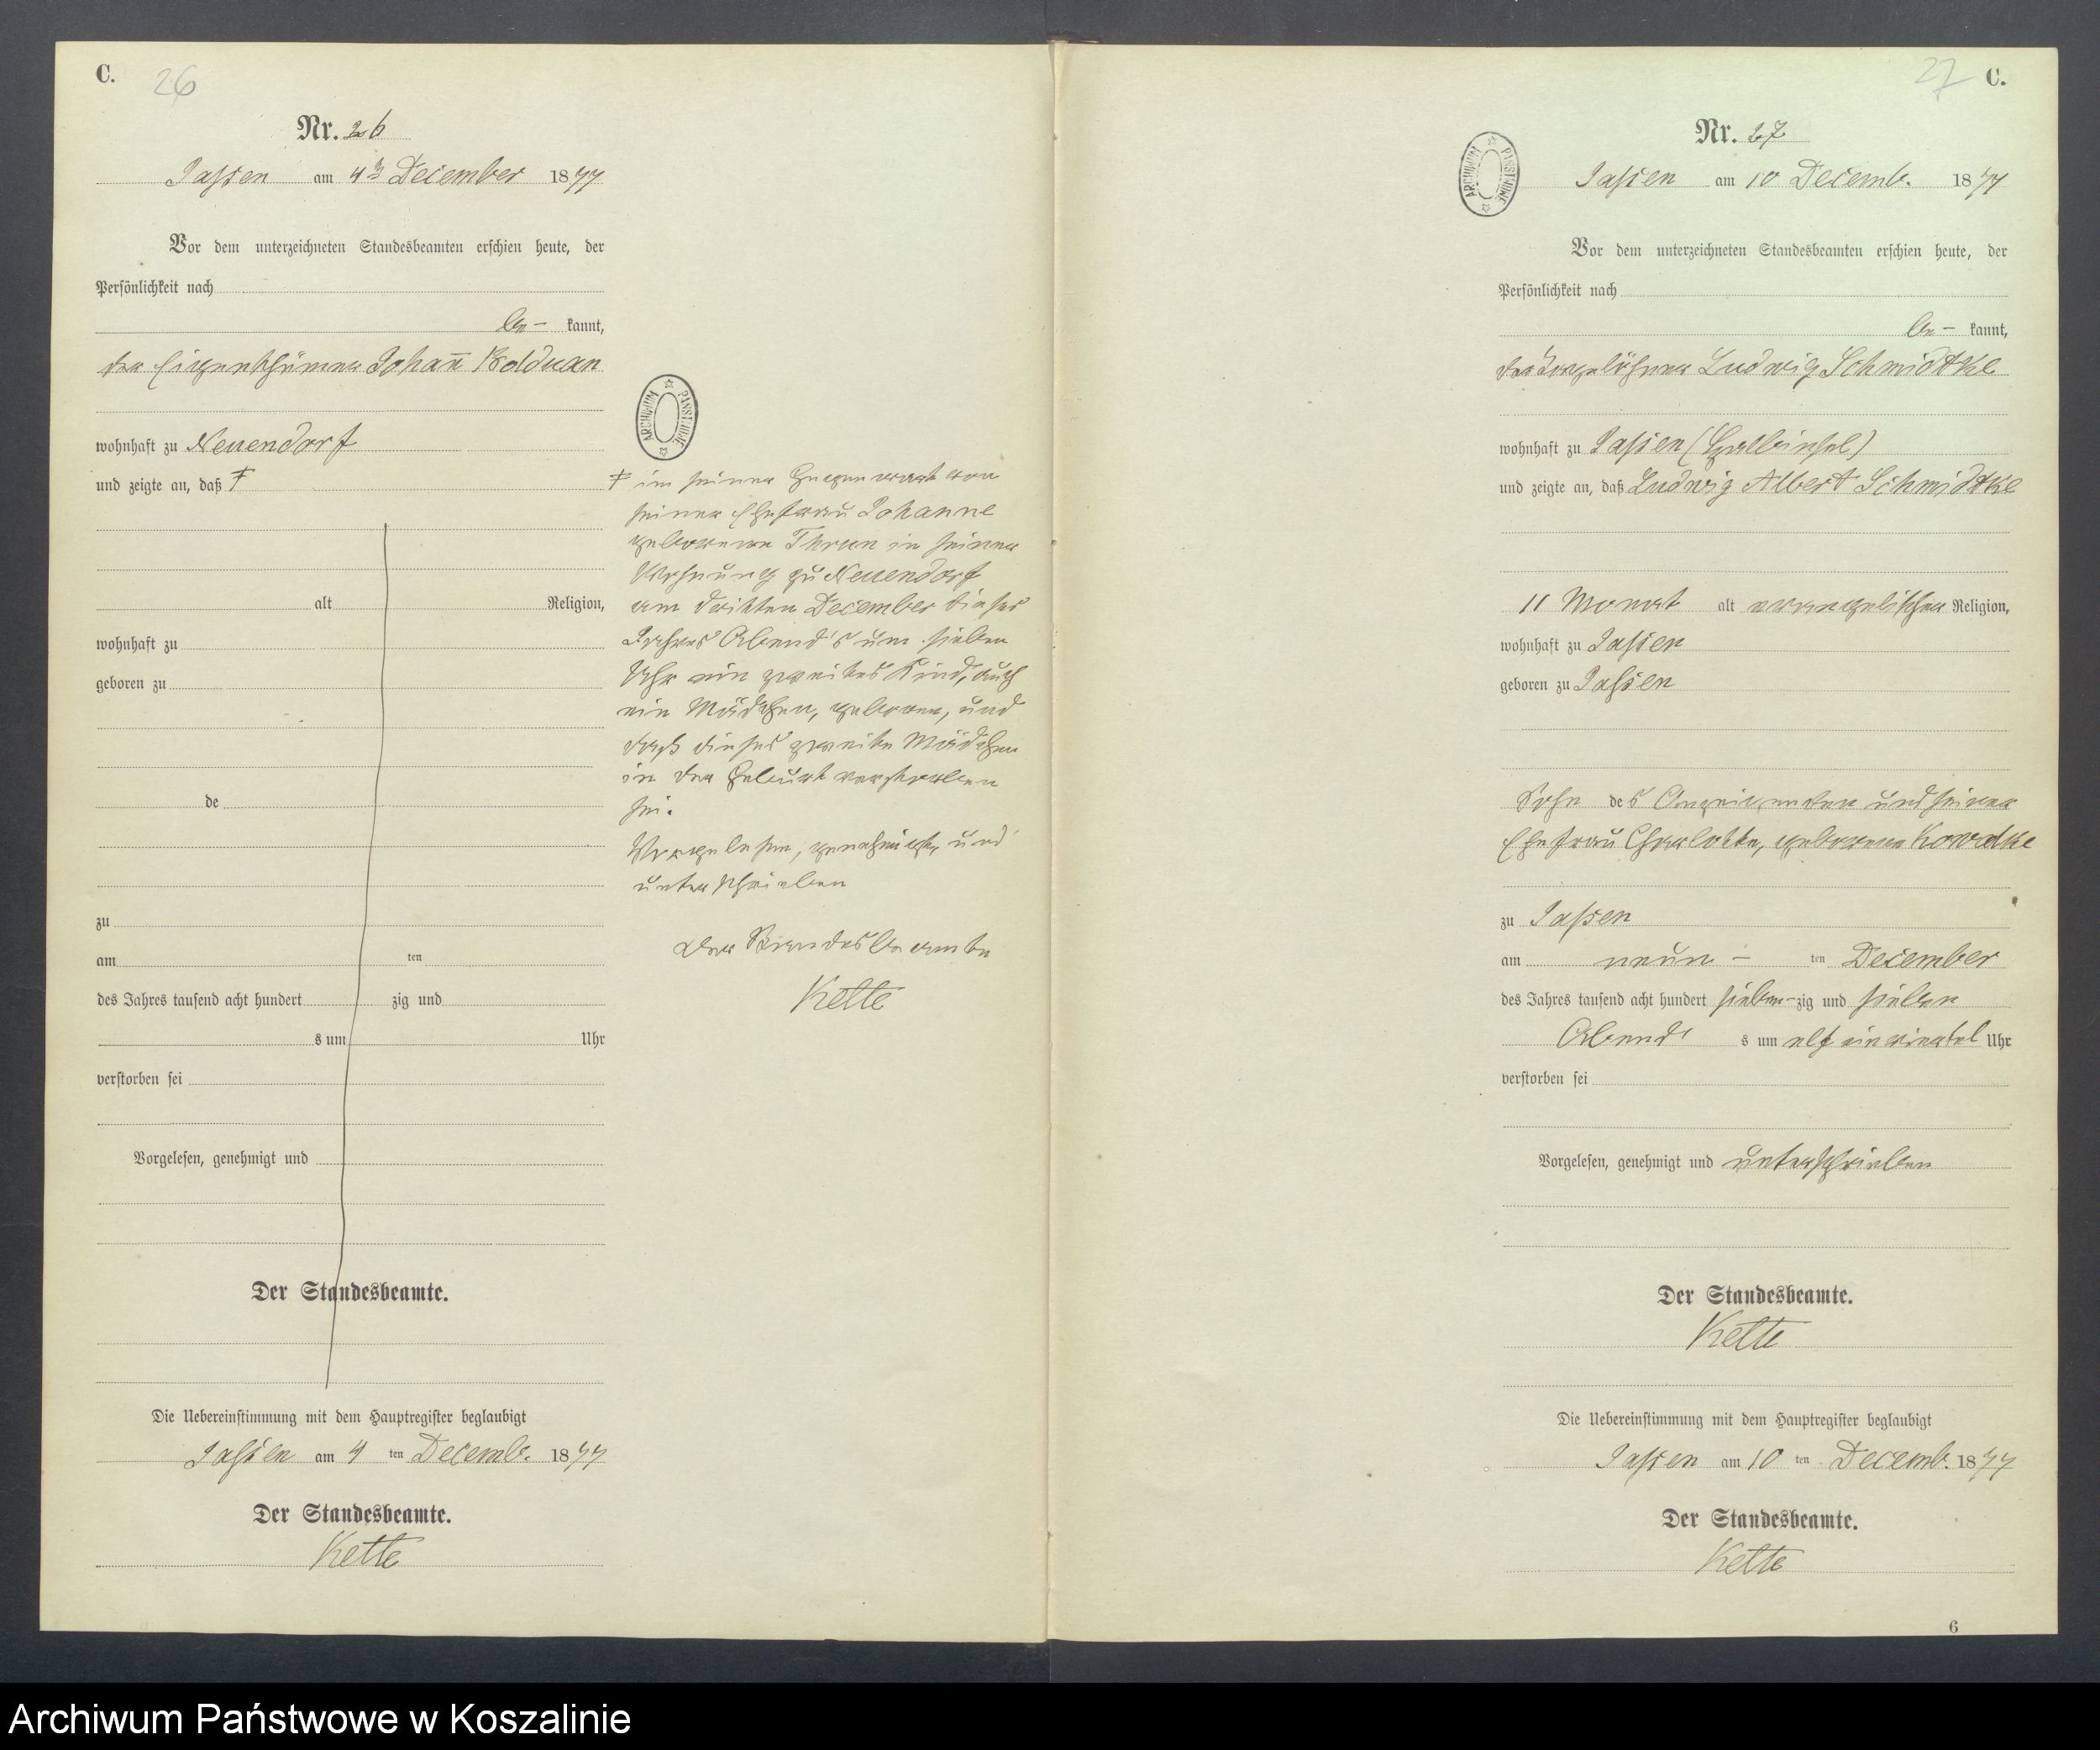 C.
26
Nr. 26
Jassen am 4ten December 1877
Vor dem unterzeichneten Standesbeamten erschien heute, der
Persönlichkeit nach
be- kannt,
der Eigenthümer Johan̅ Bolduan
wohnhaft zu Neuendorf
und zeigte an, daß ‡
alt Religion,
wohnhaft zu
geboren zu
de
zu
am ten
des Jahres tausend acht hundert zig und
s um Uhr
verstorben sei
Vorgelesen, genehmigt und
Der Standesbeamte.
Die Uebereinstimmung mit dem Hauptregister beglaubigt
Jassen am 4 ten Decemb. 1877
Der Standesbeamte.
Kette
ARCHIWUM PAŃSTWOWE
‡ in seiner Gegenwart von
seiner Ehefrau Johanne
geborenen Thrun in seiner
Wohnung zu Neuendorf
am dritten December dieses
Jahres Abend's um sieben
Uhr ein zweites Kind, auch
ein Mädchen, geboren, und
daß dieses zweite Mädchen
in der Geburt verstorben
sei.
Vorgelesen, genehmigt und
unterschrieben
Der Standesbeamte
Kette
27
C.
Nr. 27
ARCHIWUM PAŃSTWOWE
Jassen am 10 Decemb. 1877
Vor dem unterzeichneten Standesbeamten erschien heute, der
Persönlichkeit nach
be- kannt,
der Tagelöhner Ludwig Schmidtke
wohnhaft zu Jassen (Halbinsel)
und zeigte an, daß Ludwig Albert Schmidtke
11 Monat alt evangelischer Religion,
wohnhaft zu Jassen
geboren zu Jassen
Sohn des Anzeigenden und seiner
Ehefrau Charlotte, geborenen
zu Jassen
am neun - ten December
des Jahres tausend acht hundert sieben-zig und sieben
Abend s um elf ein viertel Uhr
verstorben sei
Vorgelesen, genehmigt und unterschrieben
Der Standesbeamte.
Kette
Die Uebereinstimmung mit dem Hauptregister beglaubigt
Jassen am 10 ten Decemb. 1877
Der Standesbeamte.
Kette
6
Archiwum Państwowe w Koszalinie